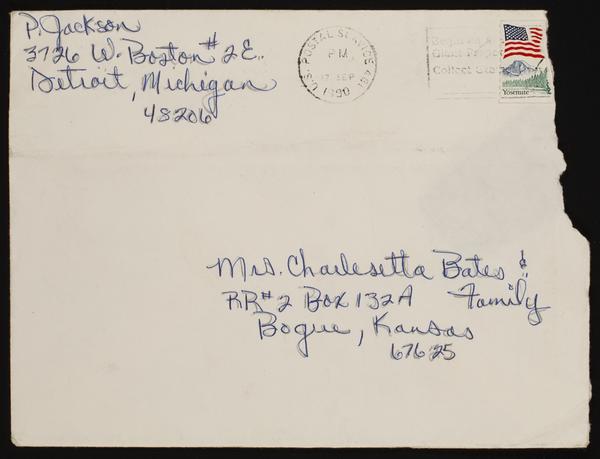 P. Jackson
3726 W. Boston #2E.
Detroit, Michigan
48206
U.S. POSTAL SERVICE 481
P.M.
17 SEP
1990
Collect
Yosemite
Mrs. Charlesetta Bates &
RR#2 Box 132A Family
Bogue, Kansas
67625